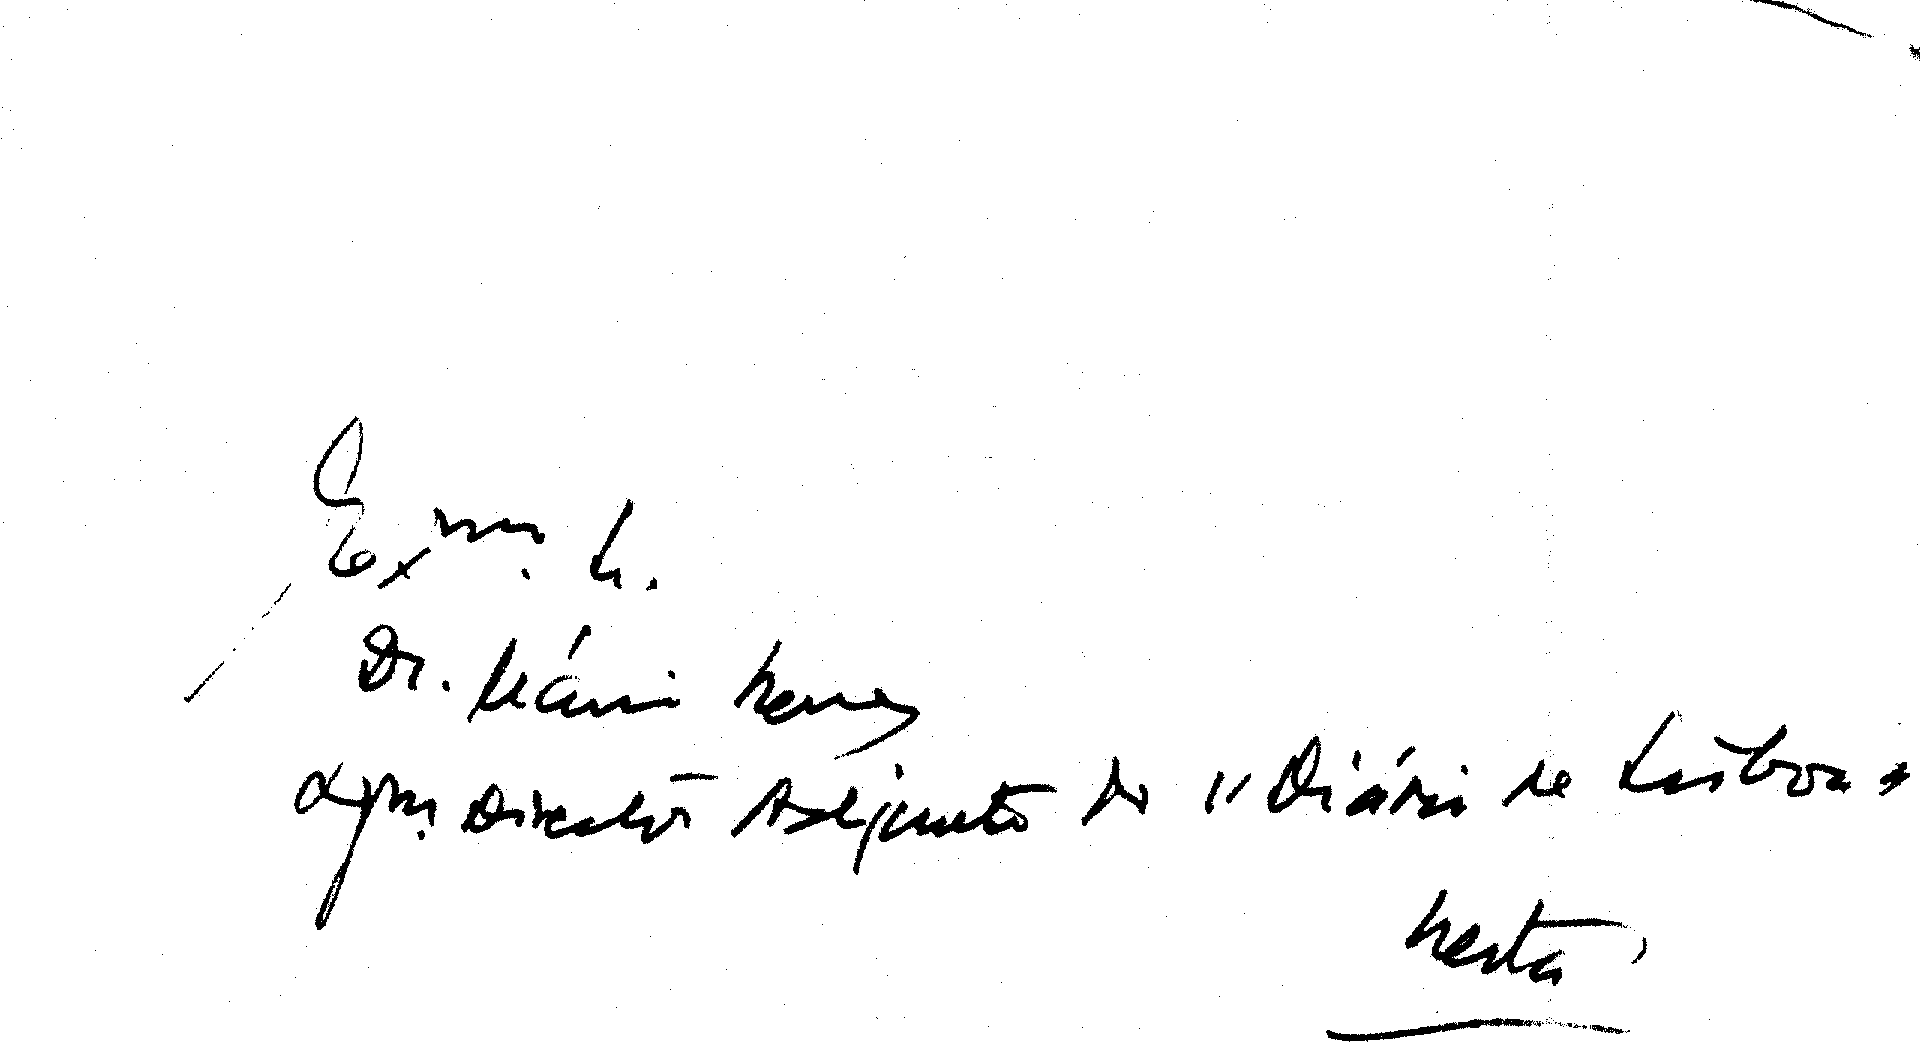 Exm. Sr.
Dr. Mário Neves
Dgm. Director Adjunto do "Diário de Lisboa"
Nesta